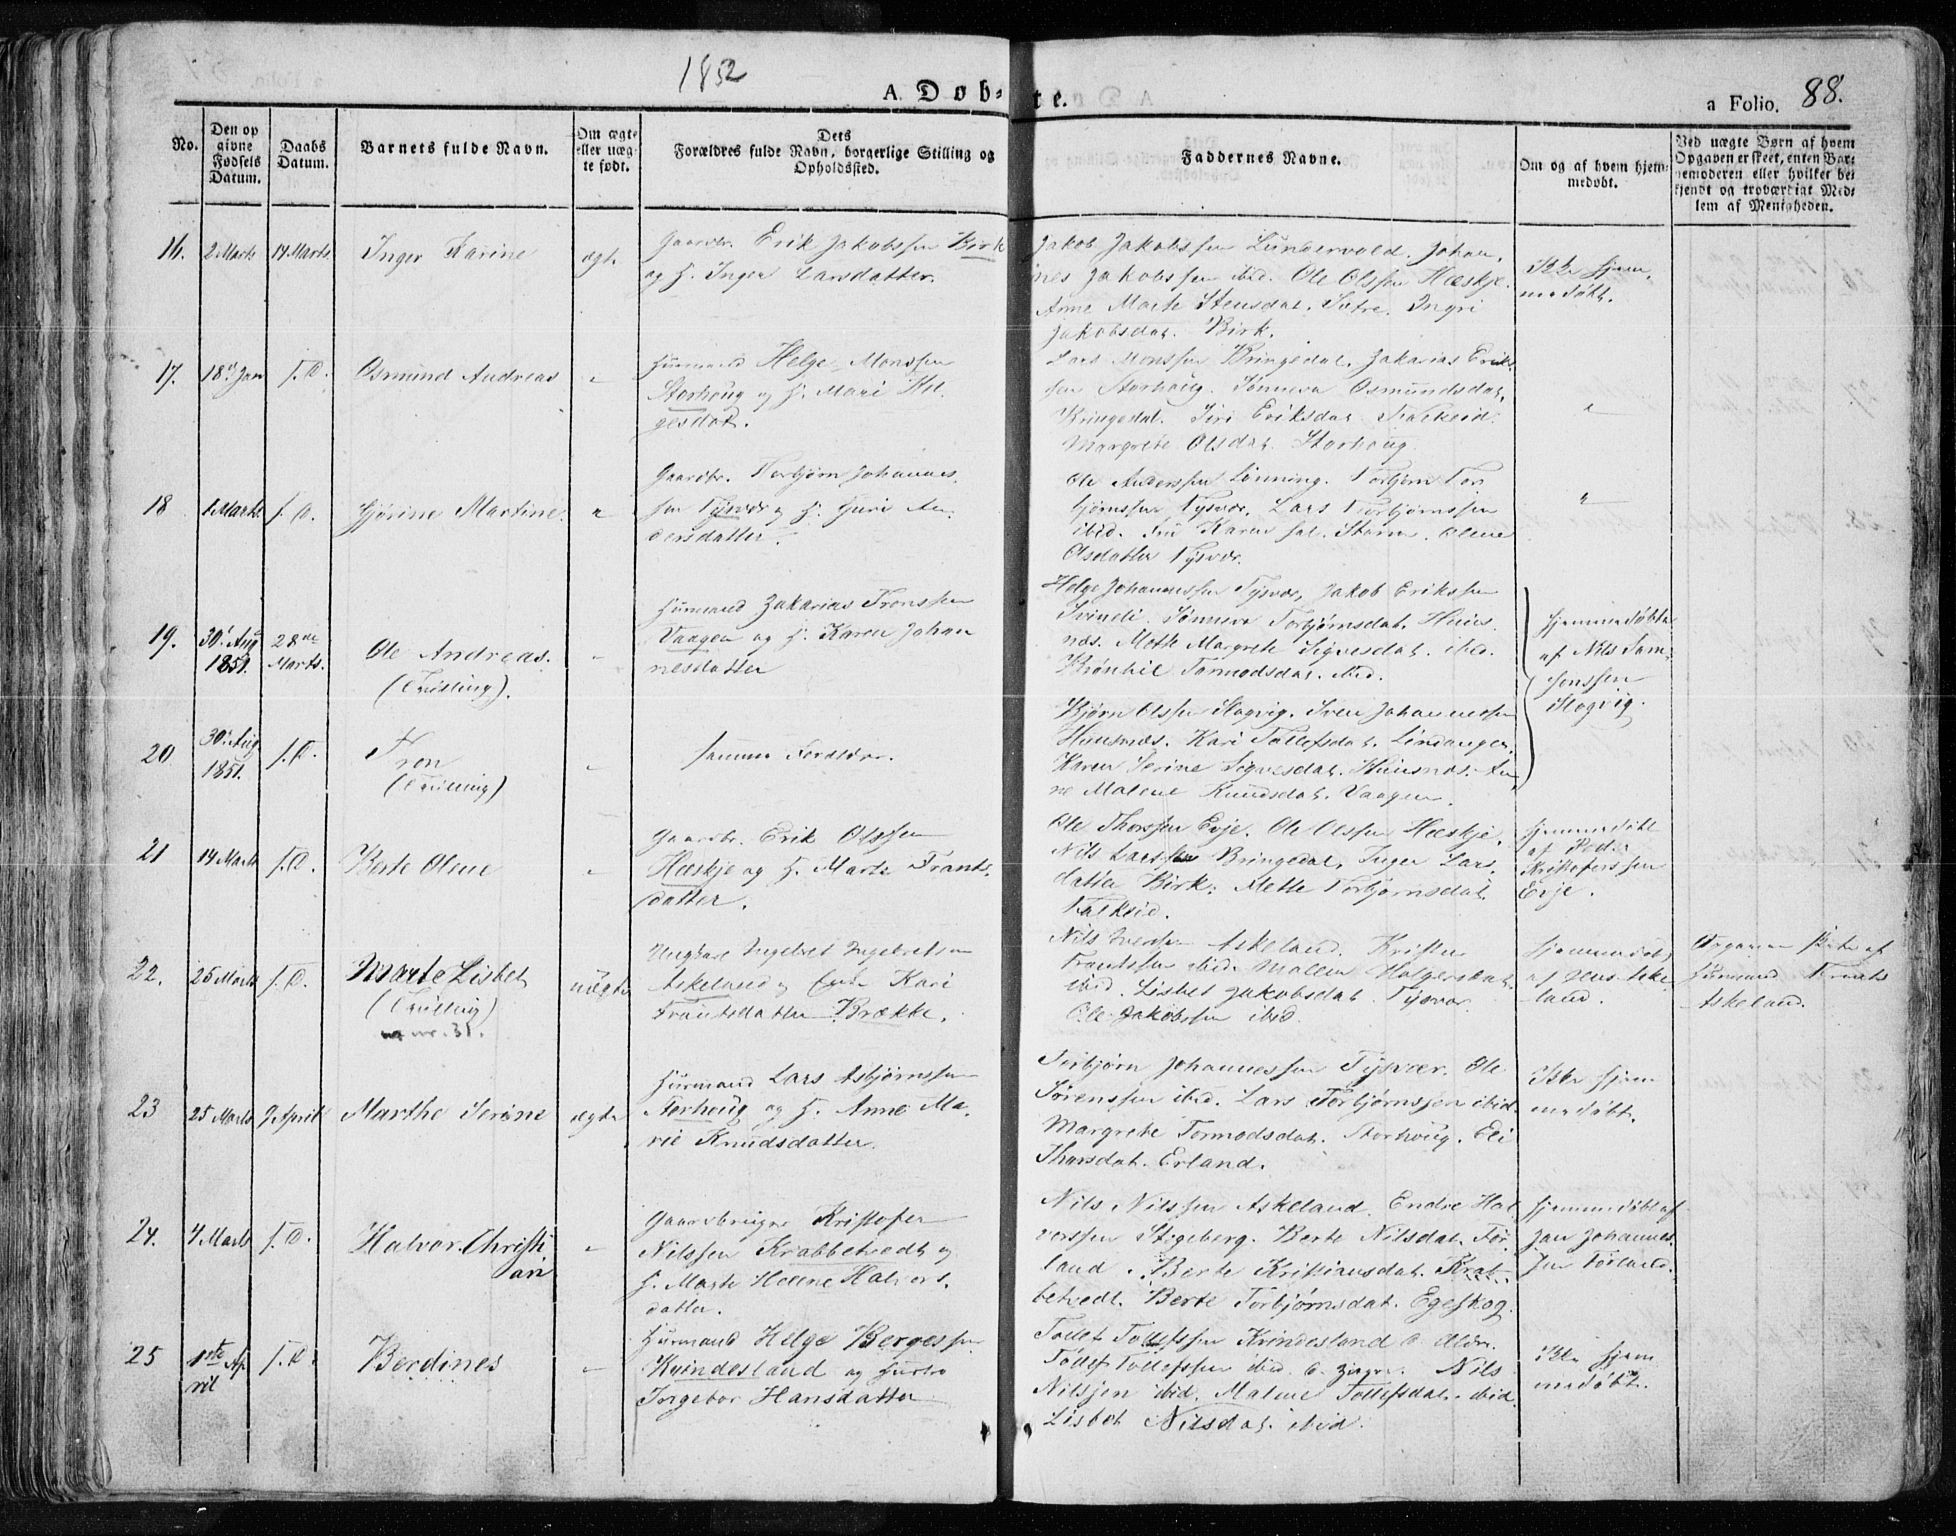 1852
A. Døb-te.
a Folio. 88.
No.
Den op
givne
Fødsels
Datum.
Daabs
Datum.
Barnets fulde Navn.
Om ægte
eller uæg-
te født.
Dets
Forældres fulde Navn, borgerlige Stilling og
Opholdssted.
Faddernes Navne.
Om og af hvem hjem-
medøbt.
Ved uægte Børn af hvem
Opgaven er skeet, enten Bar-
nemoderen eller hvilket be-
kjendt og troværdigt Med-
lem af Menigheden.
16. 2 Marts 14 Marts. Inger Karine ægte
Gaardbr. Erik Jakobssen Birk
og H. Inger Larsdatter.
Jakob Jakobssen Lundervold. Johan-
nes Jakobssen ibid. Ole Olssen Hæskje.
Anne Marte Stensdat. Sætre. Ingri
Jakobsdat. Birk.
Ikke hjem-
medøbt.
17. 18de Jan s. D. Osmund Andreas "
Huusmand Helge Monssen
Storhoug og H. Mari Hel-
gesdat.
Lars Monssen Bringedal. Zakarias Erik-
sen Storhoug. Sønneva Osmundsdat.
Bringedal. Siri Eriksdat. Falkeid.
Margrete Olsdat. Storhoug
"
18 1 Marts s. D. Gjørine Martine. "
Gaardbr. Torbjørn Johannes-
sen Tysvær og H. Guri An-
dersdatter.
Ole Anderssen Lønning. Torbjørn Tor-
bjørnssen Tysvær. Lars Torbjørnssen
ibid. Fru Karen Storm. Olene
Olsdatter Tysvær.
"
19. 30 Aug 1851. 28de Marts. Ole Andreas.
(Tvilling).
"
Huusmand Zakarias Tronssen
Vaagen og H. Karen Johan
nesdatter
Helge Johannessen Tysvær, Jakob Erikssen
Svindi. Sønneva Torbjørnsdat. Huus-
næs. Mette Margrete Sigvesdat. ibid.
Brønhil Tormodsdat. ibid.
Hjemmedøbte
af Nils Sam-
sonssen
Slogvig.
20 30 Aug. 1851. s. D. Tron
(Tvilling)
"
samme Forældre.
Bjørn Olssen Slogvig. Sven Johannessen
Huusnæs. Kari Tollefsdat. Lindanger.
Karen Serine Sigvesdat. Huusnæs. An-
ne Malene Knudsdat. Vaagen.
21 14 Marts s. D. Berte Olene "
Gaardbr. Erik Olssen
Hæskje og H. Marte Frants-
datter.
Ole Thorssen Evje. Ole Olssen Hæskje.
Nils Larssen Bringedal. Inger Lars-
datter Birk. Mette Torbjørnsdat.
Falkeid.
Hjemmedøbt
af Peder
Kristoferssen
Evje.
22. 25 Marts s. D. Marte Lisbet
(Tvilling)
og nr. 31.
uægte
Ungkarl Ingebret Ingebretsen
Askeland og Enke Kari
Frantsdatter Brække.
Nils Iverssen Askeland. Kristen
Frantssen ibid. Mallen Holgersdat.
ibid. Lisbet Jakobsdat. Tysvær.
Ole Jakobssen ibid.
Hjemmedøbt
af Aske-
land.
Opgaven skete af
Huusmand Frants
Askeland.
23 25 Marts 9 April Marthe Serine ægte
Huusmand Lars Asbjørnssen
Storhoug og H. Anne Ma-
rie Knudsdatter.
Torbjørn Johannessen Tysvær. Ole
Sørenssen ibid. Lars Torbjørnssen ibid.
Margrete Tormodsdat. Storhoug. Eli
Thorsdat. Erland.
Ikke hjem
medøbt.
24. 4 Marts s. D. Halvor Christi-
an
"
Gaardbruger Kristofer
Nilssen Krabbetvedt og
H. Marte Helene Halvors-
datter.
Nils Nilssen Askeland. Endre Hal
vorssen Stigeberg. Berte Nilsdat. Før-
land. Berte Kristiansdat. Krab-
betvedt. Berte Torbjørnsdat. Egeskog.
Hjemmedøbt af
Jan Johannes-
sen Førland.
25 1ste Ap-
ril s. D. Berdines "
Huusmand Helge Bergessen
Kvindesland og Hustro
Ingebor Hansdatter
Tollef Tollefssen Kvindesland d. Ældre.
Tollef Tollefssen ibid. d. Yngre. Nils
Nilssen ibid. Malene Tollefsdat. ibid.
Lisbet Nilsdat. ibid.
Ikke hjem
medøbt.